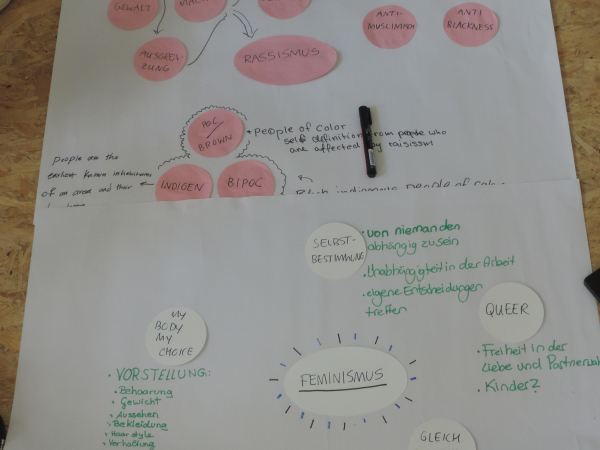 GEWALT
MACHT
AUSGREN-
ZUNG
RASSISMUS
ANTI-
MUSLIMISM
ANTI
BLACKNESS
POC
BROWN
INDIGEN
BIPOC
People of Color
self definition from people who
are affected by raisissm
People are the
earliest known inhabitants
of an area and their
Black indigenous people of color
SELBST-
BESTIMMUNG
von niemanden
abhängig zu sein
Unabhängigkeit in der Arbeit
eigene Entscheidungen
treffen
MY
BODY
MY
CHOICE
VORSTELLUNG:
Behaarung
Gewicht
Aussehen
Bekleidung
Haarstyle
Verhaltung
FEMINISMUS
QUEER
Freiheit in der
Liebe und Partnerwahl
Kinder?
GLEICH